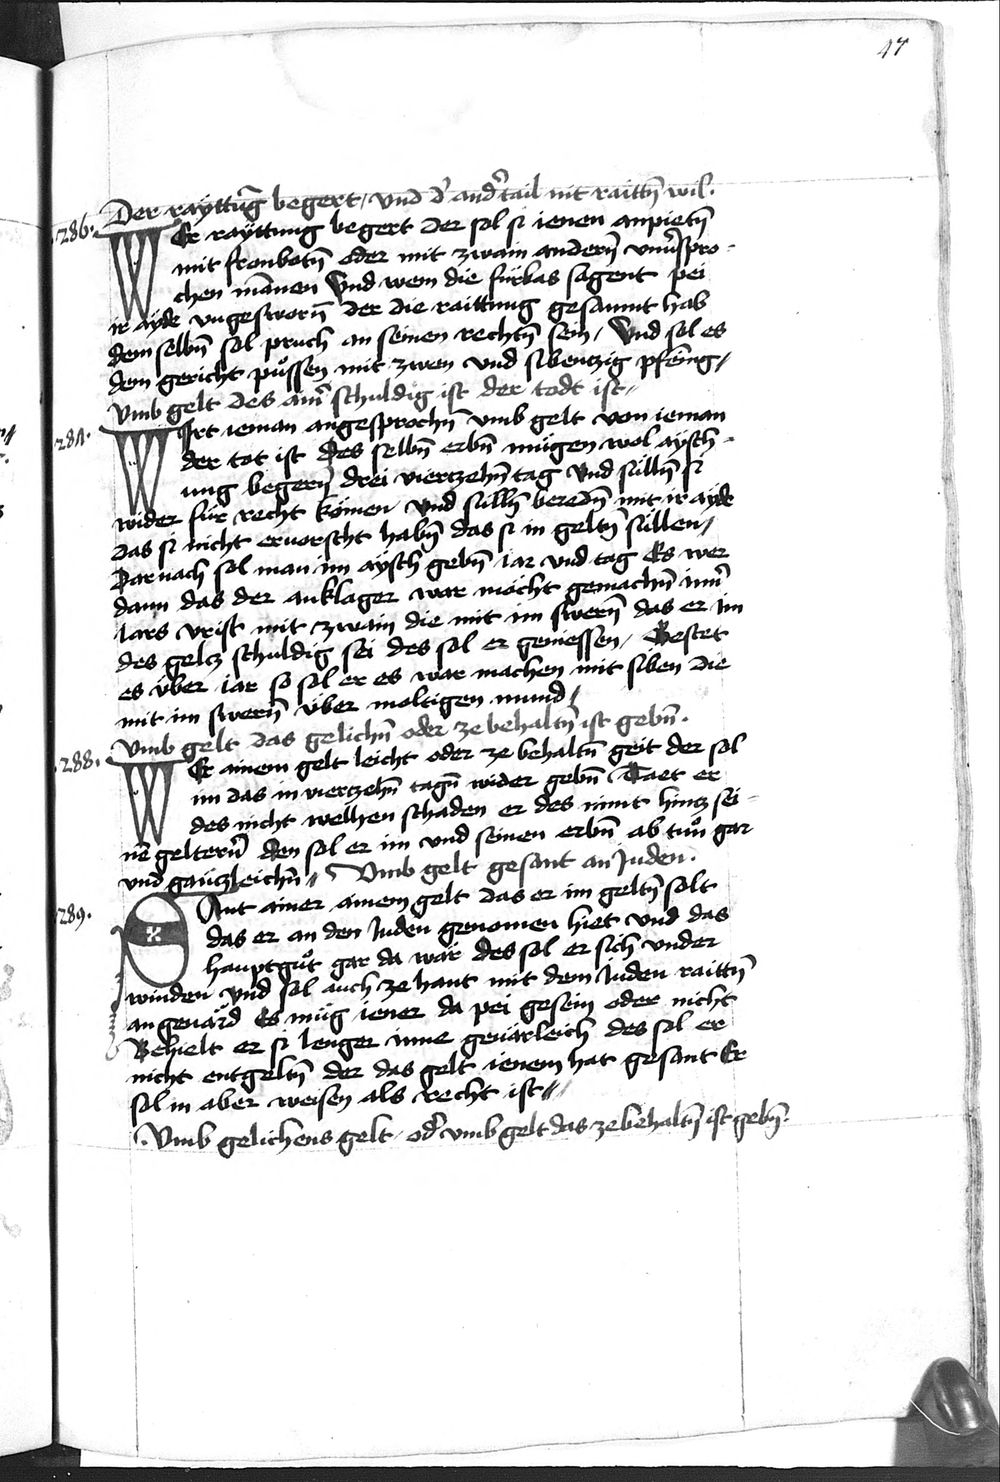 47
Der rayttūg begert / vnd d' and'tail nit raittn̄ wil.
286. WEr rayttung begert der sol si ienen anpietn̄
mit fronbotn̄ oder mit zwain andern̄ vnu'spro-
chen mānen Vnd wem die fürbas sagent pei
ir ayde vngesworn̄ der die raittung gesaumt hab
dem selbn̄ sol pruch an seinen rechtn̄ sein / Vnd sol es
dem gericht půssen mit zwen vnd sibentzig pfēing /
Vmb gelt des ain' schuldig ist der todt ist /
287. WIrt ieman angesprochn̄ vmb gelt von ieman
der tot ist Des selbn̄ erbn̄ mügen wol aysch-
ung begern̄ drei viertzehn̄ tag Vnd sülln̄ si
wider für recht kömen / Vnd sülln̄ beredn̄ mit ir ayde
das si nicht eruorscht habn̄ das si in geltn̄ süllen /
Darnach sol man im aysch gebn̄ iar vnd tag Es wer
dann das der anklager war möcht gemachn̄ inn'
iars vrist mit zwain die mit im swern̄ das er im
des geltz schuldig sei des sol er geniessen / Bestet
es über iar so sol er es war machen mit siben die
mit im swern̄ über moltigen mund /
Vmb gelt das gelichn̄ oder ze behaltn̄ ist gebn̄.
288. WEr ainem gelt leicht oder ze behaltn̄ geit der sol
im das in viertzehn̄ tagn̄ wider gebn̄ Taet er
des nicht welhen schaden er des nimt hintz sei-
nē geltern̄ den sol er im vnd seinen erbn̄ ab tuů gar
vnd gäntzleichn̄ // Vmb gelt gesant an Juden.
289. SAnt ainer ainem gelt das er im geltn̄ solt
das er an den Juden genomen hiet vnd das
hauptgůt gar da wär des sol er sich vnder
winden vnd sol auch ze hant mit dem Juden raittn̄
an geuärd Es müg iener da pei gesein oder nicht
Behielt er si lenger inne geuärleich des sol er
nicht entgeltn̄ der das gelt ienem hat gesant Er
sol in aber weisen als recht ist //
Vmb gelichens gelt / od' vmb gelt das ze behaltn̄ ist gebn̄.